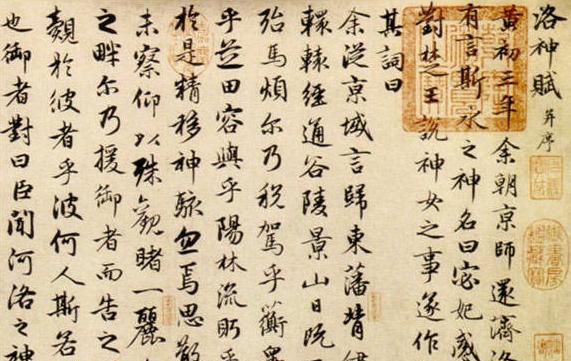 洛神賦 并序
黃初三年余朝京師還濟洛
有言斯水之神名曰宓妃感
對楚王說神女之事遂作
其詞曰
余從京域言歸東藩背伊
轘轅經通谷陵景山日既
殆馬煩尔乃稅駕乎蘅皋
乎芝田容與乎陽林流眄乎
於是精移神駭忽焉思散
未察仰以殊觀睹一麗
之畔尔乃援御者而告之
覿於彼者乎彼何人斯若
也御者對曰臣聞河洛之神